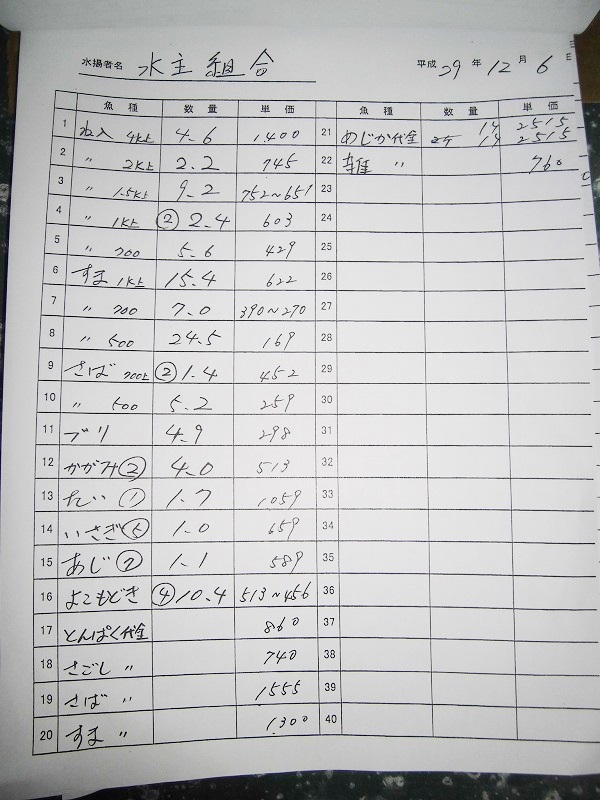 水揚者名 水主組合 平成 29 年 12 月 6 日
魚種 数量 単価 魚種 数量 単価
1 ね入 4k上 4.6 1.400 21 めじか代金 14 2515
14 2515
2 〃 2k上 2.2 745 22 雑 〃 760
3 〃 1.5k上 9.2 752~651 23
4 〃 1k上 ② 2.4 603 24
5 〃 700 5.6 429 25
6 すま 1k上 15.4 622 26
7 〃 700 7.0 390~270 27
8 〃 500 24.5 169 28
9 さば 700上 ② 1.4 452 29
10 〃 500 5.2 259 30
11 ブリ 4.9 298 31
12 かがみ ② 4.0 513 32
13 たい ① 1.7 1059 33
14 いさぎ ⑤ 1.0 659 34
15 あじ ⑦ 1.1 589 35
16 よこもどき ④ 10.4 513~456 36
17 とんぱく代金 860 37
18 さごし 〃 740 38
19 さば 〃 1555 39
20 すま 〃 1.300 40